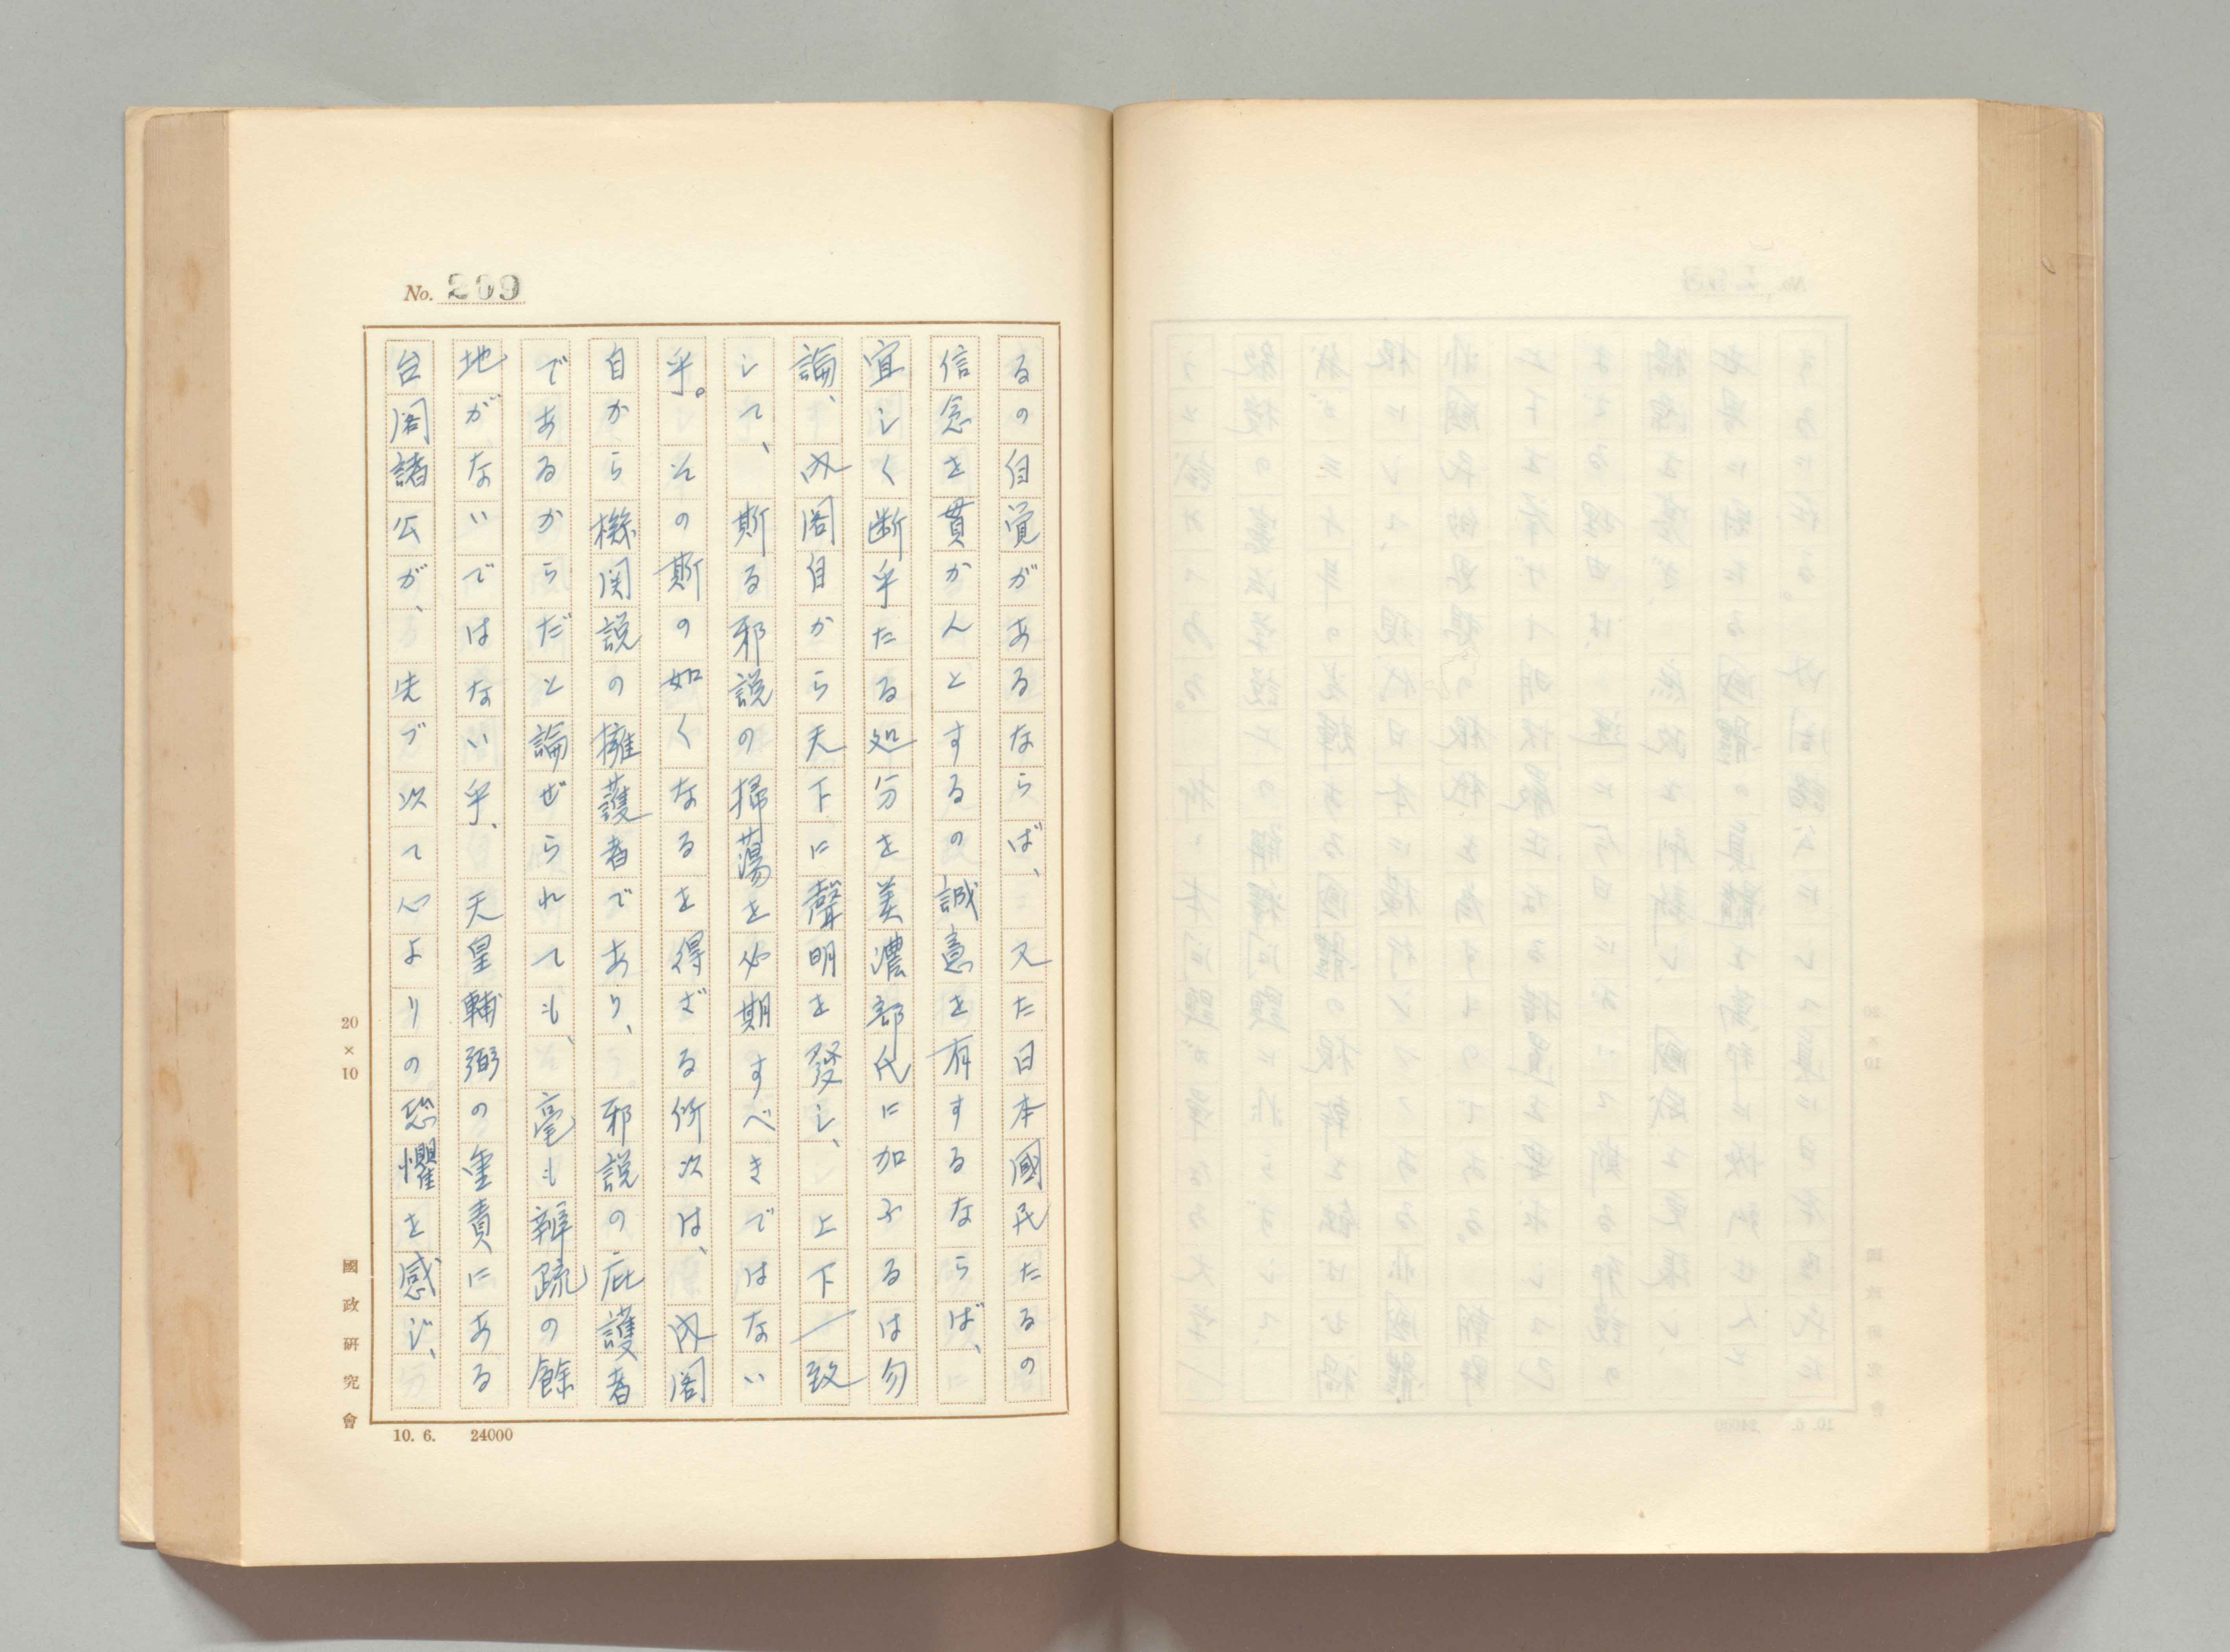 No. 209
るの自覚があるならば、又た日本國民たるの
信念を貫かんとするの誠意を有するならば、
宜しく断乎たる処分を美濃部氏に加ふるは勿
論、内閣自から天下に聲明を發し、上下一致
して、斯る邪説の掃蕩を必期すべきではない
乎。その斯の如くなるを得ざる所次は、内閣
自から機関説の擁護者であり、邪説の庇護者
であるからだと論ぜられても、毫も辯疏の餘
地がないではない乎、天皇輔弼の重責にある
台閣諸公が、先づ次て心よりの恐懼を感じ、
20×10
國政研究會
10. 6. 24000